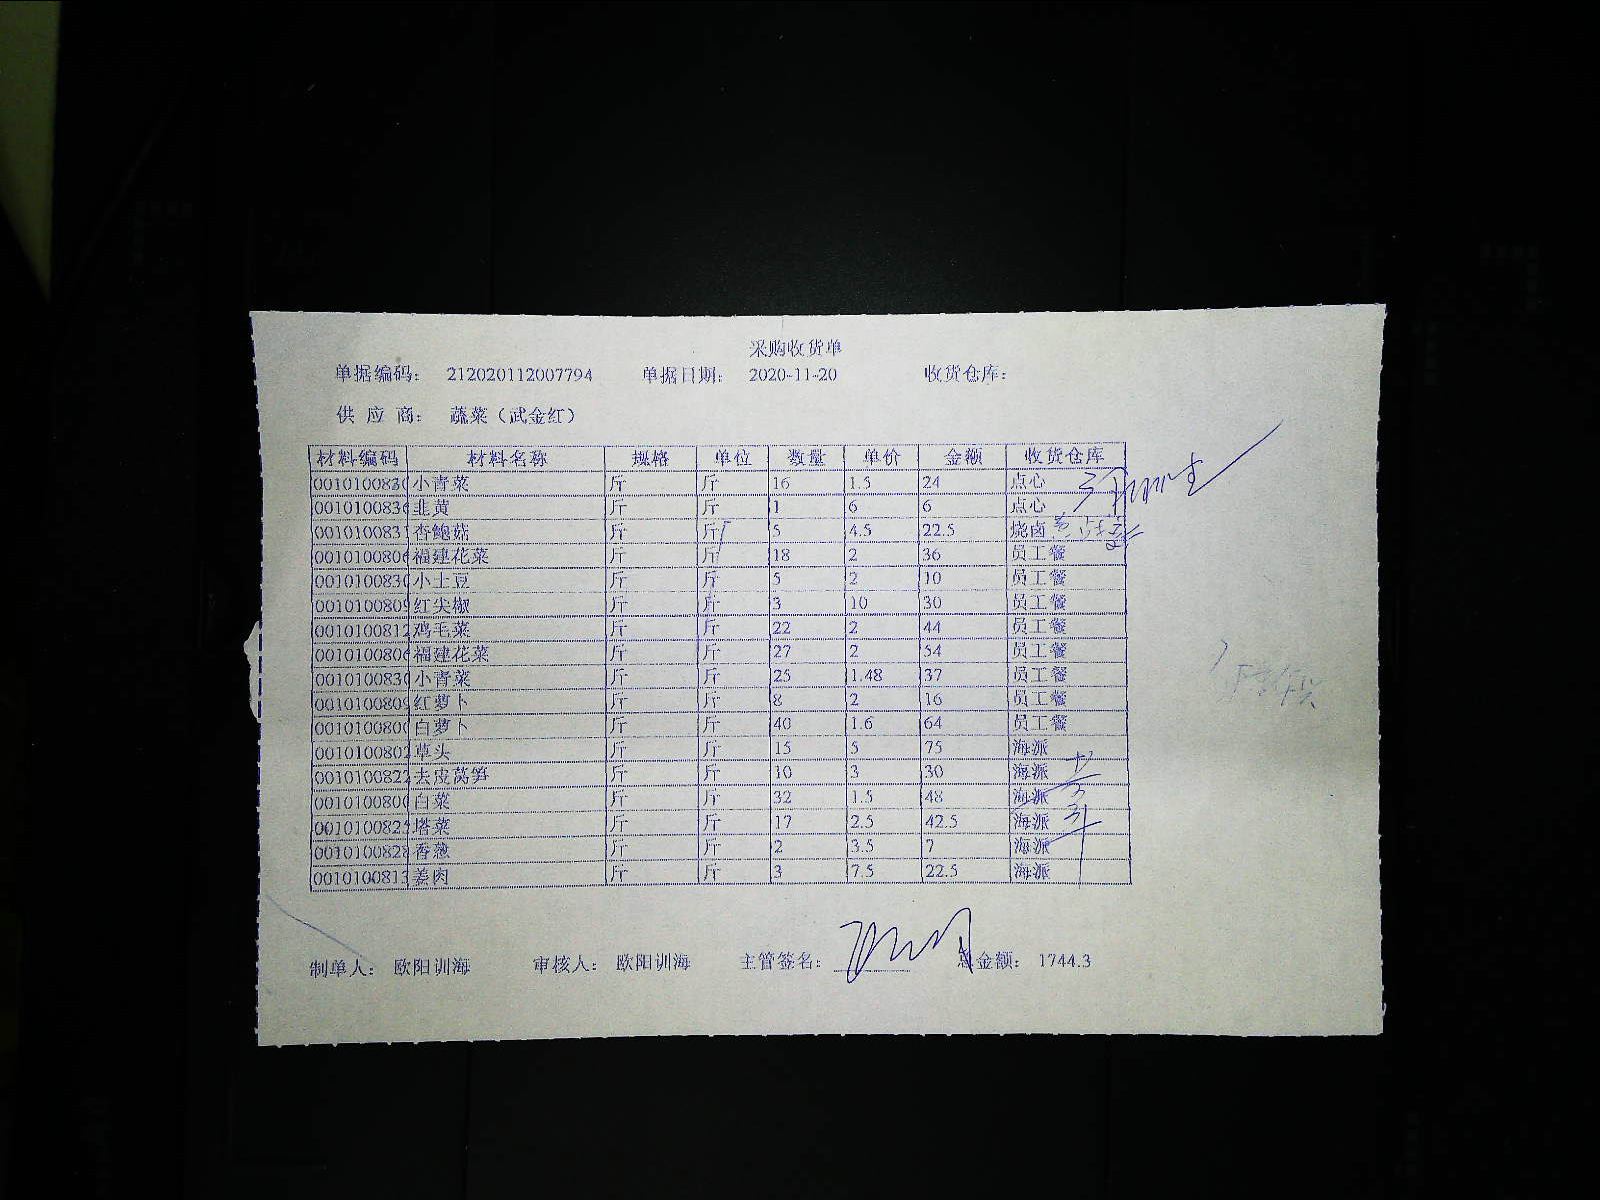 采购收货单
单据编码： 212020112007794 单据日期： 2020-11-20 收货仓库：
供 应 商： 蔬菜（武金红）
材料编码 材料名称 规格 单位 数量 单价 金额 收货仓库
001010083 小青菜 斤 斤 16 1.5 24 点心
001010083 韭黄 斤 斤 1 6 6 点心
001010083 杏鲍菇 斤 斤 5 4.5 22.5 烧卤
001010080 福建花菜 斤 斤 18 2 36 员工餐
001010083 小土豆 斤 斤 5 2 10 员工餐
001010080 红尖椒 斤 斤 3 10 30 员工餐
0010100812 鸡毛菜 斤 斤 22 2 44 员工餐
001010080 福建花菜 斤 斤 27 2 54 员工餐
001010083 小青菜 斤 斤 25 1.48 37 员工餐
001010080 红萝卜 斤 斤 8 2 16 员工餐
001010080 白萝卜 斤 斤 40 1.6 64 员工餐
0010100802 草头 斤 斤 15 5 75 海派
0010100822 去皮莴笋 斤 斤 10 3 30 海派
001010080 白菜 斤 斤 32 1.5 48 海派
001010082 塔菜 斤 斤 17 2.5 42.5 海派
001010082 香葱 斤 斤 2 3.5 7 海派
0010100813 姜肉 斤 斤 3 7.5 22.5 海派
制单人： 欧阳训海 审核人： 欧阳训海 主管签名： 总金额： 1744.3